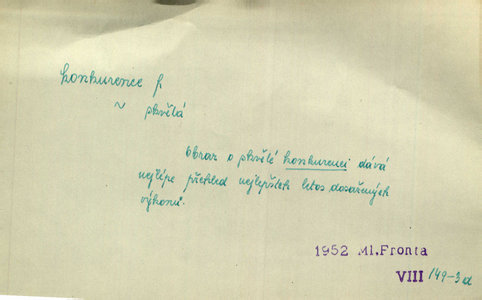 konkurence f.
~ skvělá
Obraz o skvělé konkurenci dává
nejlépe přehled nejlepších letos dosažených
výkonů.
1952 Ml.Fronta
VIII /49-3 d